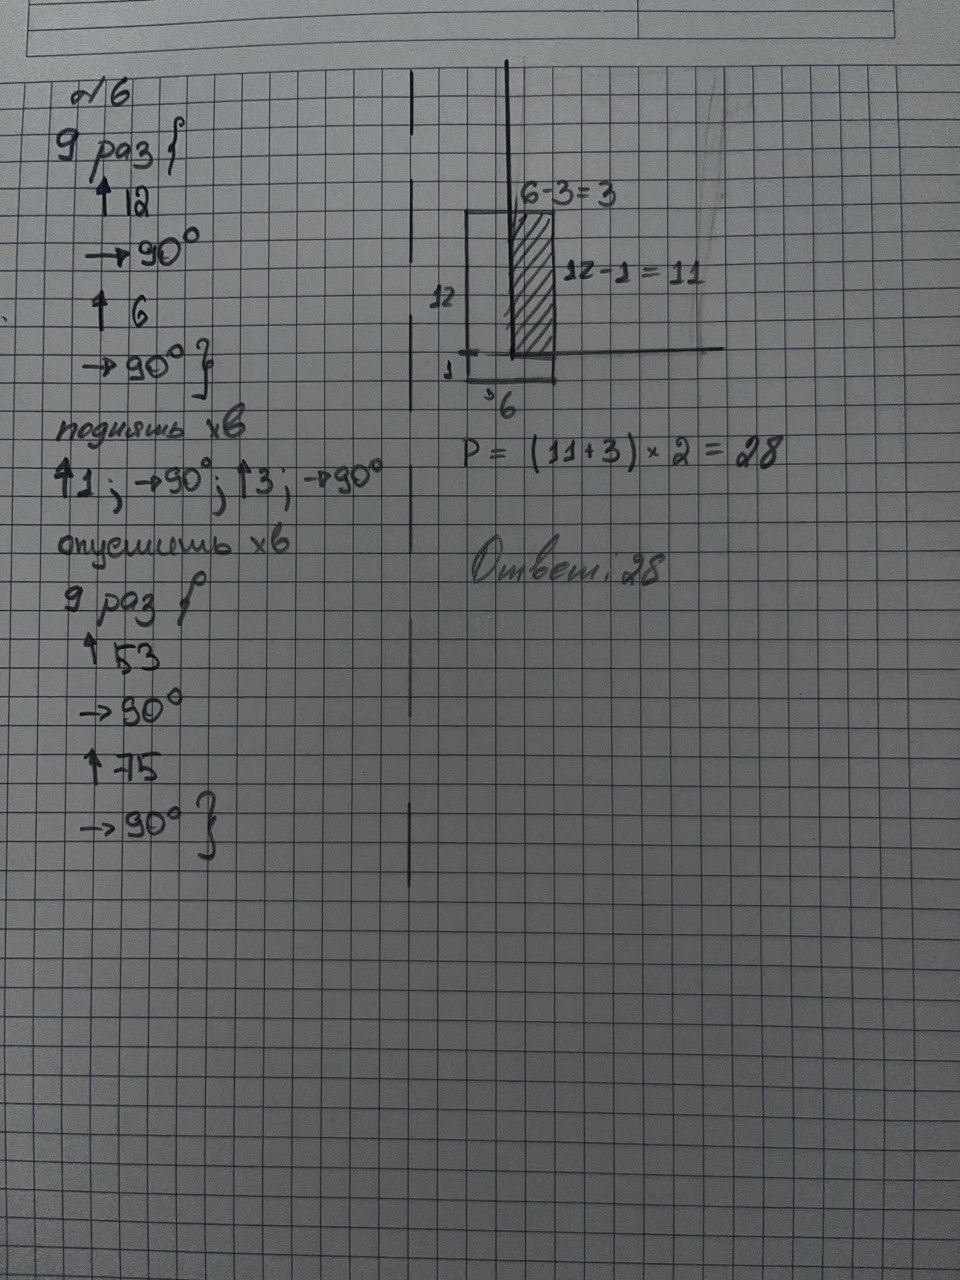 №6
9 раз {
↑ 12
→ 90°
↑ 6
→ 90° }
поднять хв
↑1; →90°; ↑3; →90°
опустить хв
9 раз {
↑ 53
→ 90°
↑ 75
→ 90° }
6-3=3
12-1=11
12
1
3
6
P = (11+3)×2=28
Ответ: 28